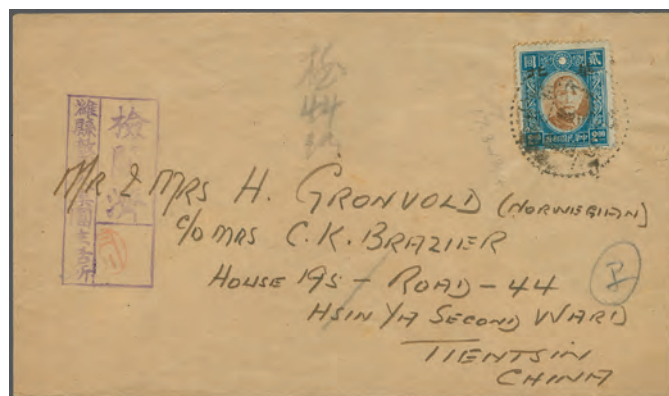 圓 貳
檢
44
號
檢閱濟
濰縣敵
集團生活所
MR & MRS H. GRONVOLD (NORWEGIAN)
C/O MRS C.K. BRAZIER
HOUSE 195 - ROAD - 44
HSIN YA SECOND WARD
TIENTSIN
CHINA